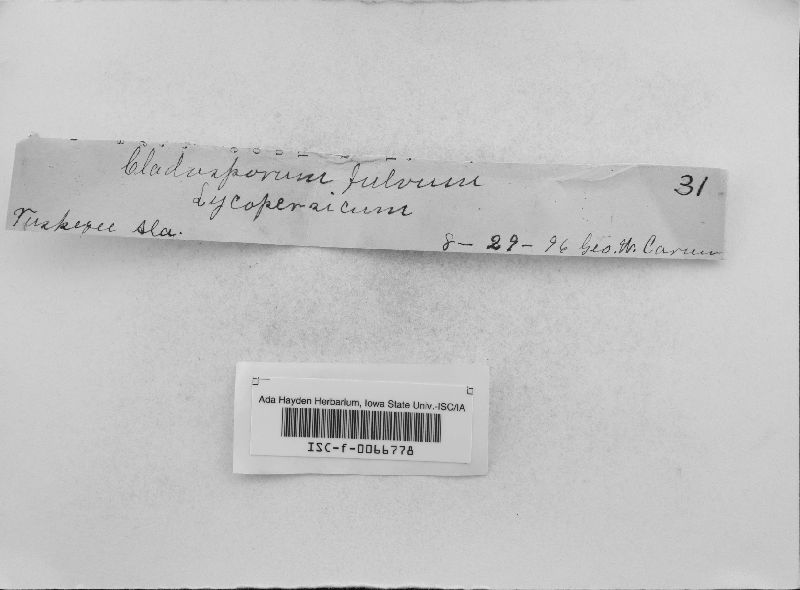 Cladosporum fulvum
31
Lycopersicum
Tuskegee Ala.
8-29-96 Geo. W. Carver
Ada Hayden Herbarium, Iowa State Univ.-ISC/IA
ISC-f-0066778